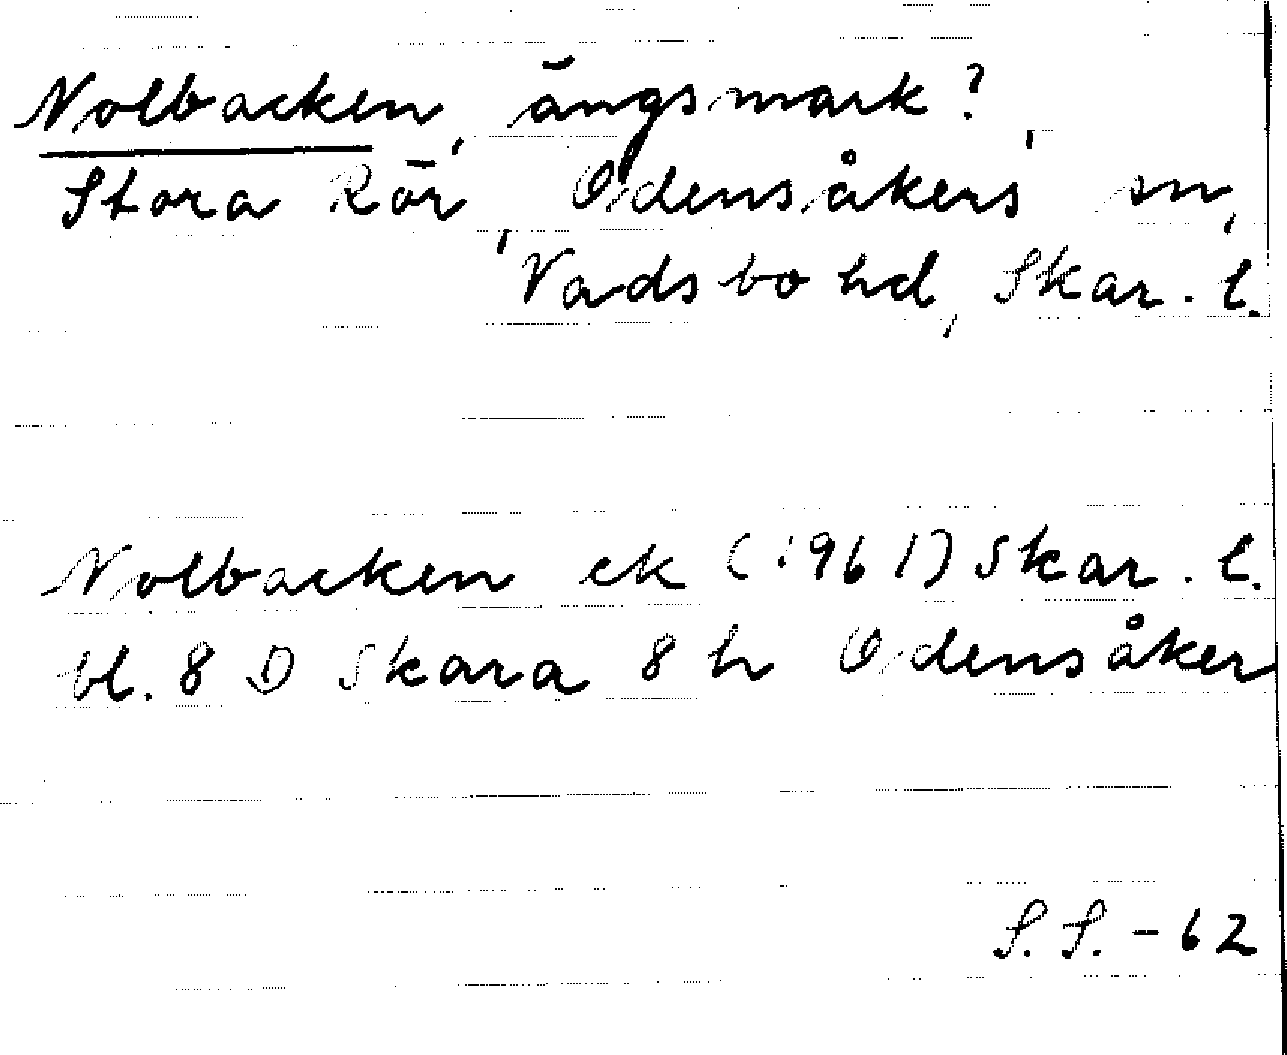 Nolbacken, ängsmark?,
Stora Rör, Odensåkers sn,
Vadsbo hd, Skar. l.
Nolbacken ek (1961) Skar. l.
bl. 8 D Skara 8 h Odensåker
S.S. - 62